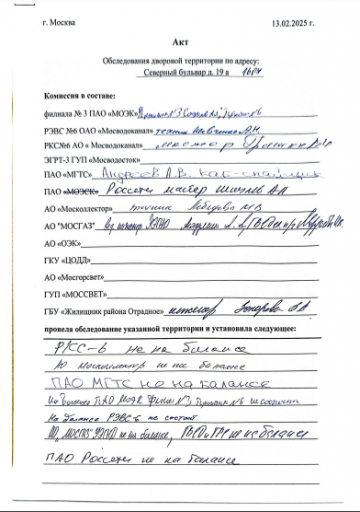 г. Москва 13.02.2025 г.
Акт
Обследования дворовой территории по адресу:
Северный бульвар д. 19 в 16
Комиссия в составе:
филиала № 3 ПАО «МОЭК»
РЭВС №6 ОАО «Мосводоканал» техник
РКС№6 АО « Мосводоканал» мастер
ЭГРТ-3 ГУП «Мосводосток»
ПАО «МГТС» Андреев А.В. каб-спайщик
ПАО «МОЭСК» Россети мастер
АО «Москоллектор» техник
АО "МОСГАЗ"
АО «ОЭК»
ГКУ «ЦОДД»
АО «Мосгорсвет»
ГУП «МОССВЕТ»
ГБУ «Жилищник района Отрадное» инженер
провела обследование указанной территории и установила следующее:
РКС-6 не на балансе
АО москоллектор не на балансе
ПАО МГТС не на балансе
На балансе ПАО МОЭК филиал №3 не состоит
На балансе РЭВС-6 не состоит
АО "МОСГАЗ" не на балансе, не на балансе
ПАО Россети не на балансе